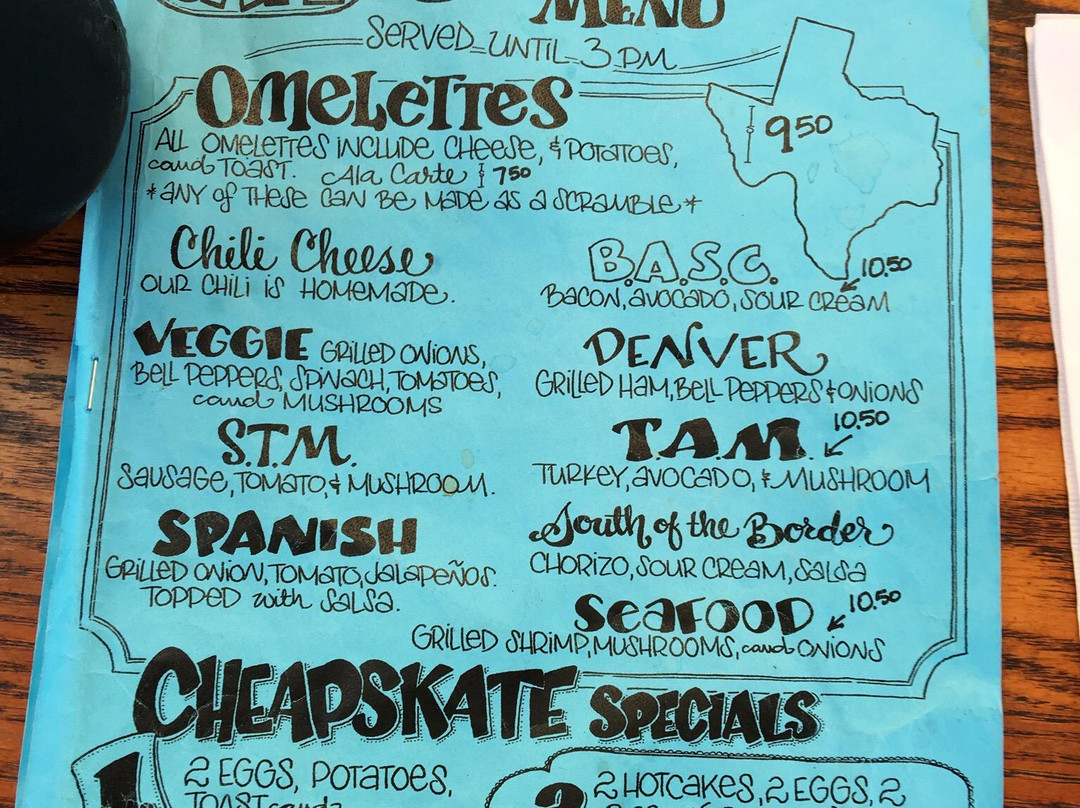 MENU
SERVED UNTIL 3 PM
OMELETTES
ALL OMELETTES INCLUDE CHEESE, & POTATOES,
and TOAST. Ala Carte 7 50
* ANY of THESE CAN BE MADE AS A SCRAMBLE *
9 50
Chili Cheese
OUR CHILI is HOMEMADE.
B.A.S.C. 10.50
BACON, AVOCADO, SOUR CREAM
VEGGIE GRILLED ONIONS,
BELL PEPPERS, SPINACH, TOMATOES,
and MUSHROOMS
DENVER
GRILLED HAM, BELL PEPPERS & ONIONS
S.T.M.
SAUSAGE, TOMATO, & MUSHROOM.
T.A.M. 10.50
TURKEY, AVOCADO, & MUSHROOM
SPANISH
GRILLED ONION, TOMATO, JALAPEÑOS.
TOPPED with SALSA.
South of the Border
CHORIZO, SOUR CREAM, SALSA
SEAFOOD 10.50
GRILLED SHRIMP, MUSHROOMS, and ONIONS
CHEAPSKATE SPECIALS
1
2 EGGS, POTATOES,
TOAST and
2
2 HOTCAKES, 2 EGGS, 2